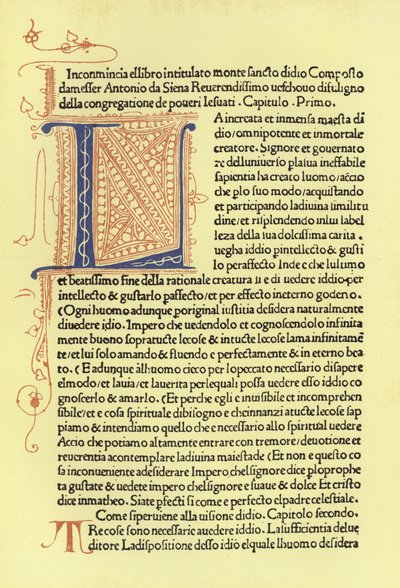 Inconmincia el libro intitulato monte sancto didio Composto
da messer Antonio da Siena Reuerendissimo uescouo di fuligno
della congregatione de poueri Iesuati . Capitulo . Primo .
LA increata et inmensa maesta di
dio/omnipotente et inmortale
creatore . Signore et gouernato
re delluniuerso pla sua ineffabile
sapientia ha creato luomo/accio
che plo suo modo/acquistando
et participando ladiuina similitu
dine/et risplendendo in lui label
leza della sua dolcissima carita .
uegha iddio pintellecto & gusti
lo peraffecto Inde e che lultimo
et beatissimo fine della rationale creatura si e di uedere iddio per
intellecto & gustarlo paffecto/et per effecto ineterno godeno .
(Ogni huomo adunque poriginal iustitia desidera naturalmente
diuedere idio . Impero che uedendolo et cognoscendolo infinita
mente buono sopratucte lecose & intucte lecose lama infinitamē
te/et lui solo amando & fluendo e perfectamente & in eterno bea
to. (E adunque allhuomo cieco per lopeccato necessario disapere
elmodo/et lauia/et lauerita perlequali possa uedere esso iddio co
gnoscerlo & amarlo . (Et perche egli e inuisibile et incomprehen
sibile/et e cosa spirituale dibisogno e cheinnanzi atucte lecose sap
piamo & intendiamo quello che e necessario allo spiritual uedere
Accio che potiamo altamente entrare con tremore/deuotione et
reuerentia acontemplare ladiuina maiestade (Et non e questo co
sa inconueniente adesiderare Impero chelsignore dice plo prophe
ta gustate & uedete impero chelsignore e suaue & dolce Et cristo
dice inmatheo . Siate pfecti si come e perfecto el padre celestiale .
Come si peruiene alla uisione didio . Capitolo secondo .
TRe cose sono necessarie auedere iddio . La sufficientia del ue
ditore La dispositione desso idio el quale lhuomo desidera